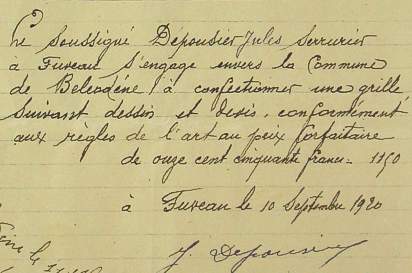 Le soussigné Depousier Jules serrurier
à Fuveau s'engage envers la Commune
de Belcodène à confectionner une grille
suivant dessin et devis, conformément
aux règles de l'art au prix forfaitaire
de onze cent cinquante francs = 1150
à Fuveau le 10 Septembre 1920
J. Depousier